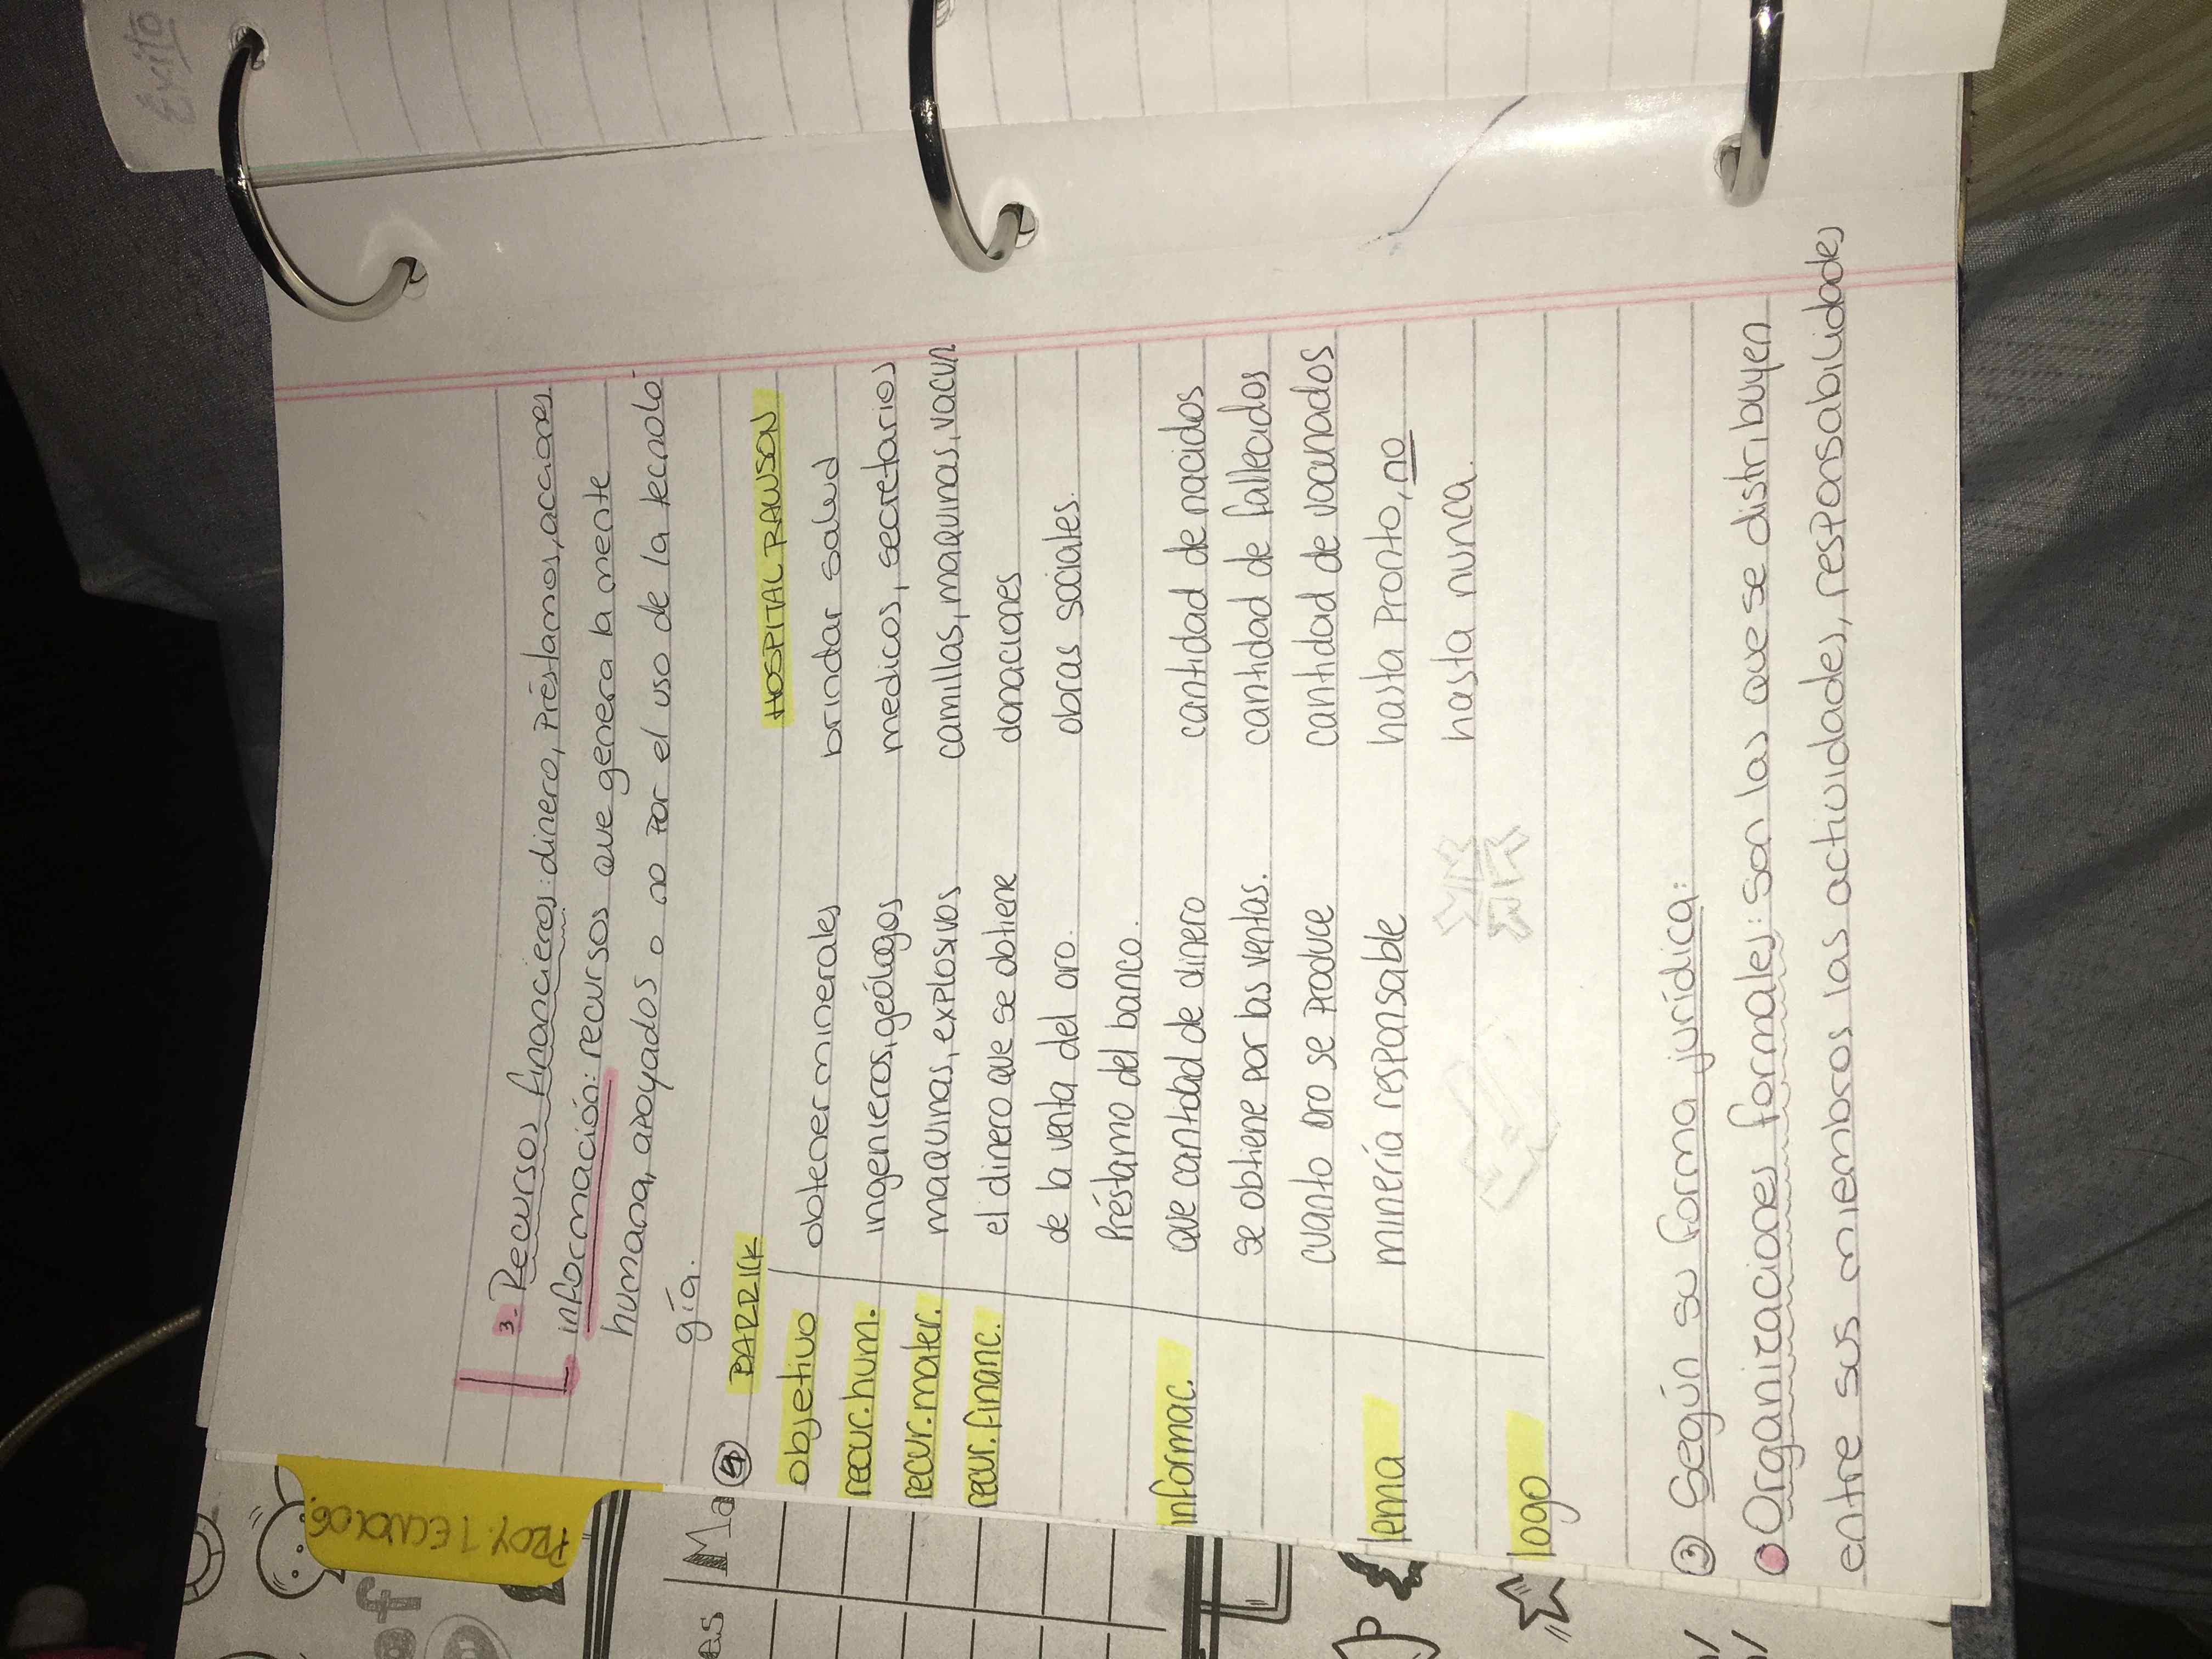 Exito
3- Recursos financieros: dinero, préstamos, acciones
información: recursos que genera la mente
humana, apoyados o no por el uso de la tecnolo-
gía.
④ BARRICK HOSPITAL RAWSON
objetivo obtener minerales brindar salud
recur. hum. ingenieros, geólogos medicos, secretarios
recur. mater. maquinas, explosivos camillas, maquinas, vacun
recur. financ. el dinero que se obtiene donaciones
de la venta del oro. obras sociales.
Préstamo del banco.
informac. que cantidad de dinero cantidad de nacidos
se obtiene por las ventas. cantidad de fallecidos
cuanto oro se produce cantidad de vacunados
lema minería responsable hasta Pronto, no
hasta nunca.
logo
③ Según su forma jurídica:
Organizaciones formales: son las que se distribuyen
entre sus miembros las actividades, responsabilidades
PROY. TECNOLOG.
Ma
es